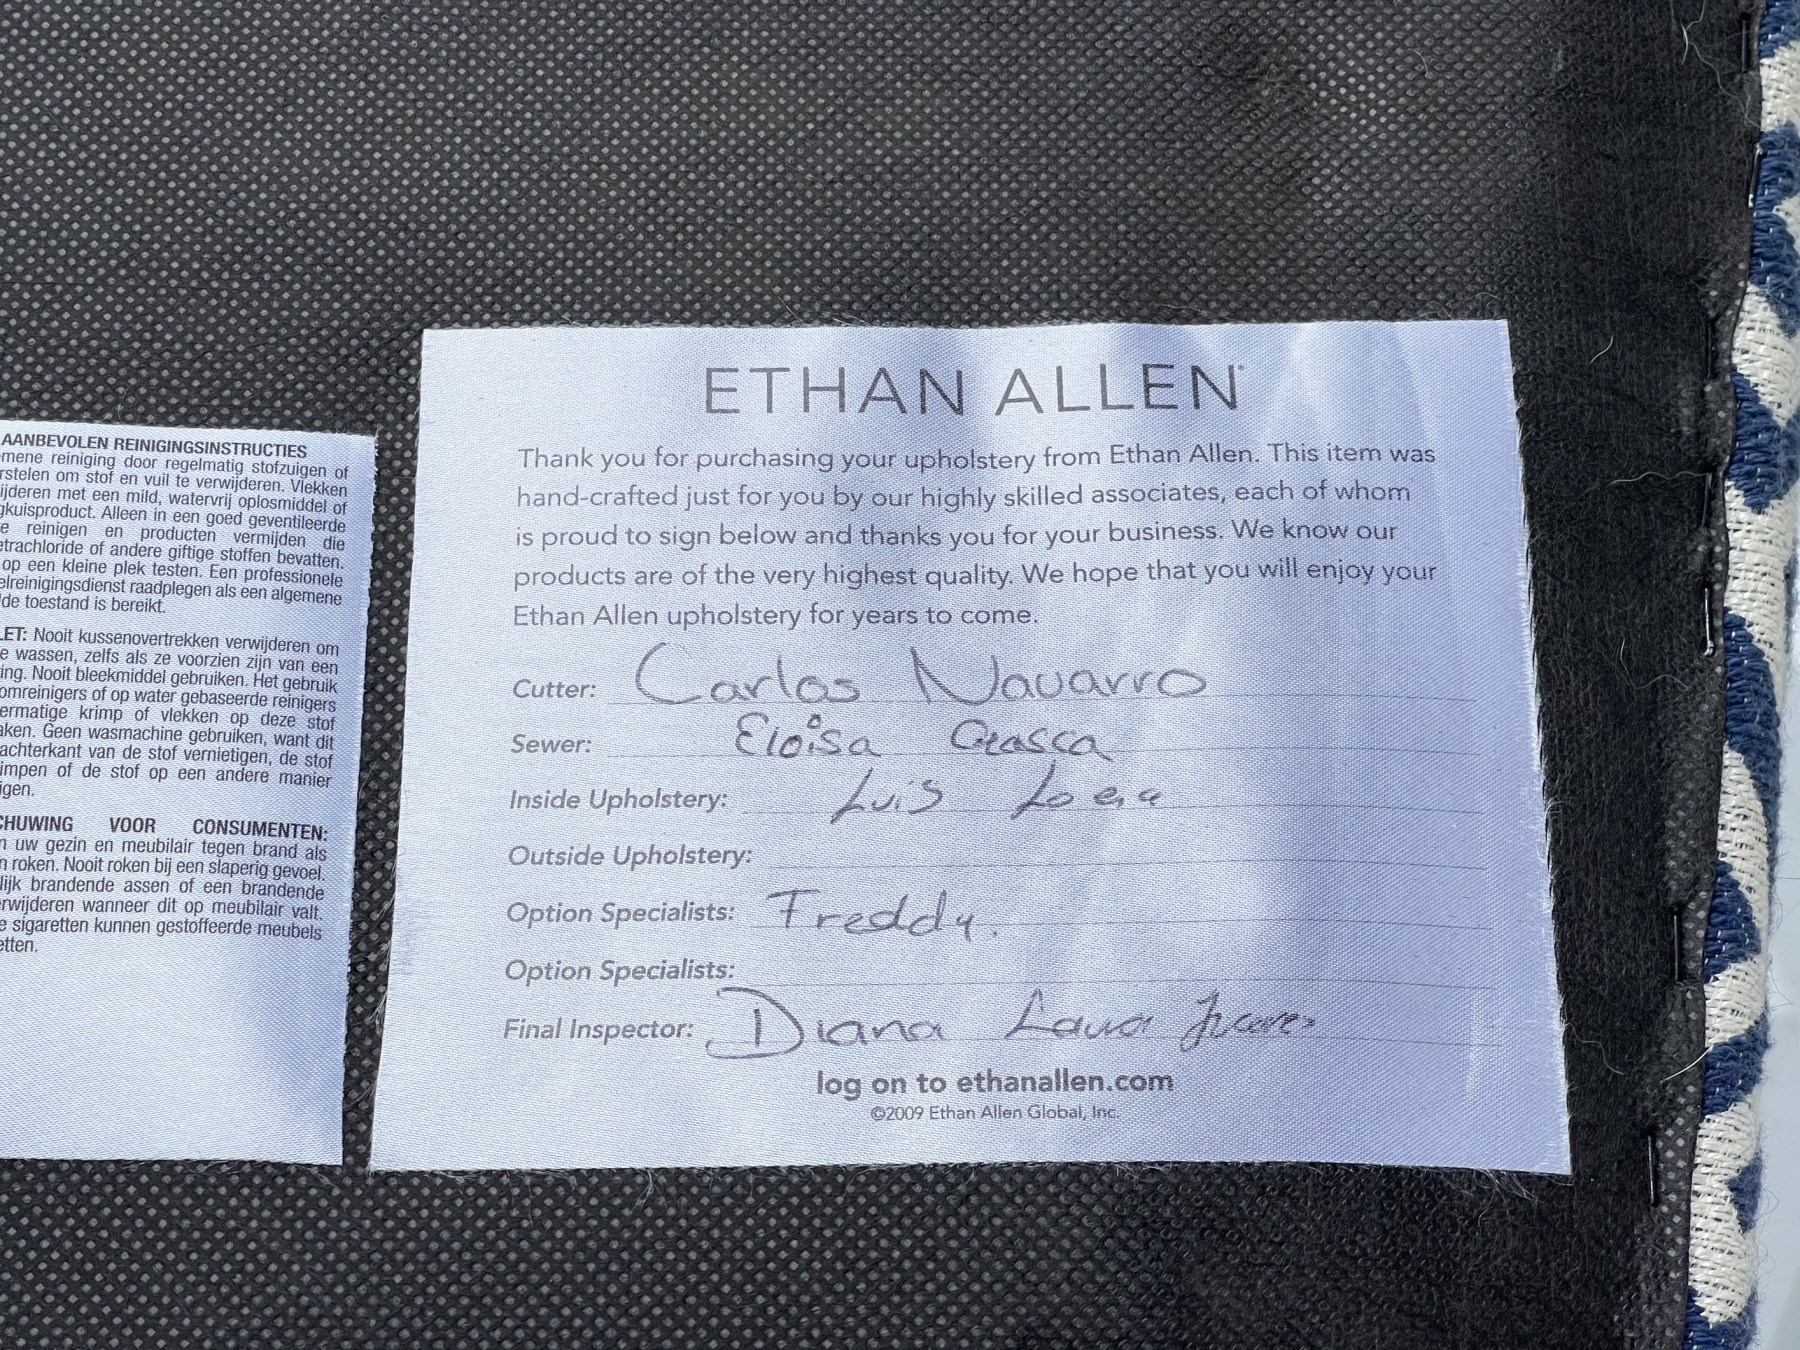 AANBEVOLEN REINIGINGSINSTRUCTIES
mene reiniging door regelmatig stofzuigen of
rstelen om stof en vuil te verwijderen. Vlekken
ijderen met een mild, watervrij oplosmiddel of
gkuisproduct. Alleen in een goed geventileerde
e reinigen en producten vermijden die
etrachloride of andere giftige stoffen bevatten.
op een kleine plek testen. Een professionele
elreinigingsdienst raadplegen als een algemene
de toestand is bereikt.
LET: Nooit kussenovertrekken verwijderen om
e wassen, zelfs als ze voorzien zijn van een
ing. Nooit bleekmiddel gebruiken. Het gebruik
omreinigers of op water gebaseerde reinigers
ermatige krimp of vlekken op deze stof
aken. Geen wasmachine gebruiken, want dit
achterkant van de stof vernietigen, de stof
impen of de stof op een andere manier
igen.
CHUWING VOOR CONSUMENTEN:
n uw gezin en meubilair tegen brand als
n roken. Nooit roken bij een slaperig gevoel.
lijk brandende assen of een brandende
rwijderen wanneer dit op meubilair valt.
e sigaretten kunnen gestoffeerde meubels
etten.
ETHAN ALLEN
Thank you for purchasing your upholstery from Ethan Allen. This item was
hand-crafted just for you by our highly skilled associates, each of whom
is proud to sign below and thanks you for your business. We know our
products are of the very highest quality. We hope that you will enjoy your
Ethan Allen upholstery for years to come.
Cutter: Carlos Navarro
Sewer: Eloisa
Inside Upholstery: Luis
Outside Upholstery:
Option Specialists: Freddy.
Option Specialists:
Final Inspector: Diana Laura
log on to ethanallen.com
©2009 Ethan Allen Global, Inc.